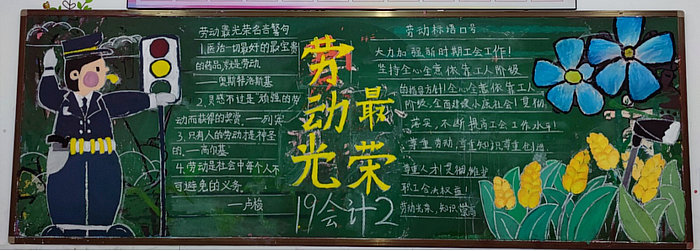 劳动最光荣名言警句
1.医治一切最好的最宝贵
的药品,就是劳动
——奥斯特洛斯基
2.灵感不过是"顽强的劳
动而获得的奖赏"——列宾
3.只有人的劳动才是神圣
的.——高尔基
4.劳动是社会中每个人不
可避免的义务.
——卢梭
劳动
最
光荣
19会计2
劳动标语口号
大力加强新时期工会工作!
坚持全心全意依靠工人阶级
的指导方针!全心全意依靠工人
阶级,全面建设小康社会!
劳实,不断提高工会工作水平!
尊重劳动,尊重知识,尊重创造
尊重人才!
职工合法权益!
劳动光荣,知识